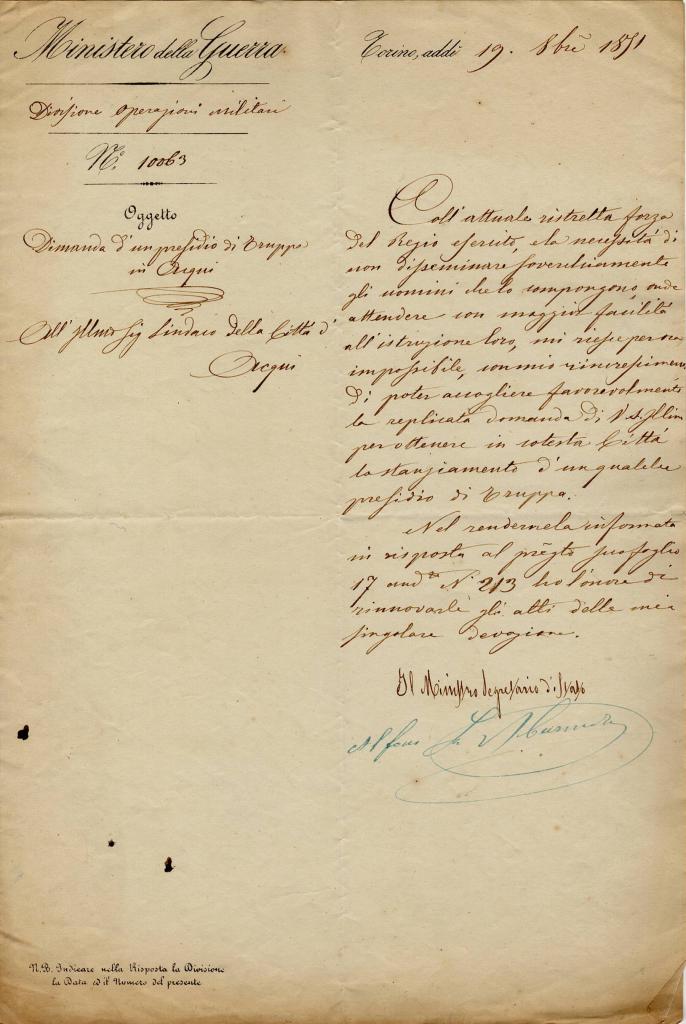 Ministero della Guerra
Divisione operazioni militari
N.° 10063
Oggetto
Dimanda d'un presidio di Truppa
in Acqui
All' Illmo Sig Sindaco della Città d'
Acqui
Torino, addì 19. 8bre 1851
Coll' attuale ristretta forza
del Regio esercito, e la necessità di
non disseminare soverchiamente
gli uomini che lo compongono, onde
attendere con maggior facilità
all'istruzione loro, mi riesce per ora
impossibile, con mio rincrescimento
di poter accogliere favorevolmente
la replicata domanda di V.S. Illma
per ottenere in cotesta Città
lo stanziamento d'un qualche
presidio di Truppa.
Nel rendernela informata
in risposta al pregto suo foglio
17 andte N.° 213 ho l'onore di
rinnovarle gli atti della mia
singolare devozione.
Il Ministro Segretario di Stato
Alfonso La Marmora
N.B. Indicare nella Risposta la Divisione
la Data ed il Numero del presente